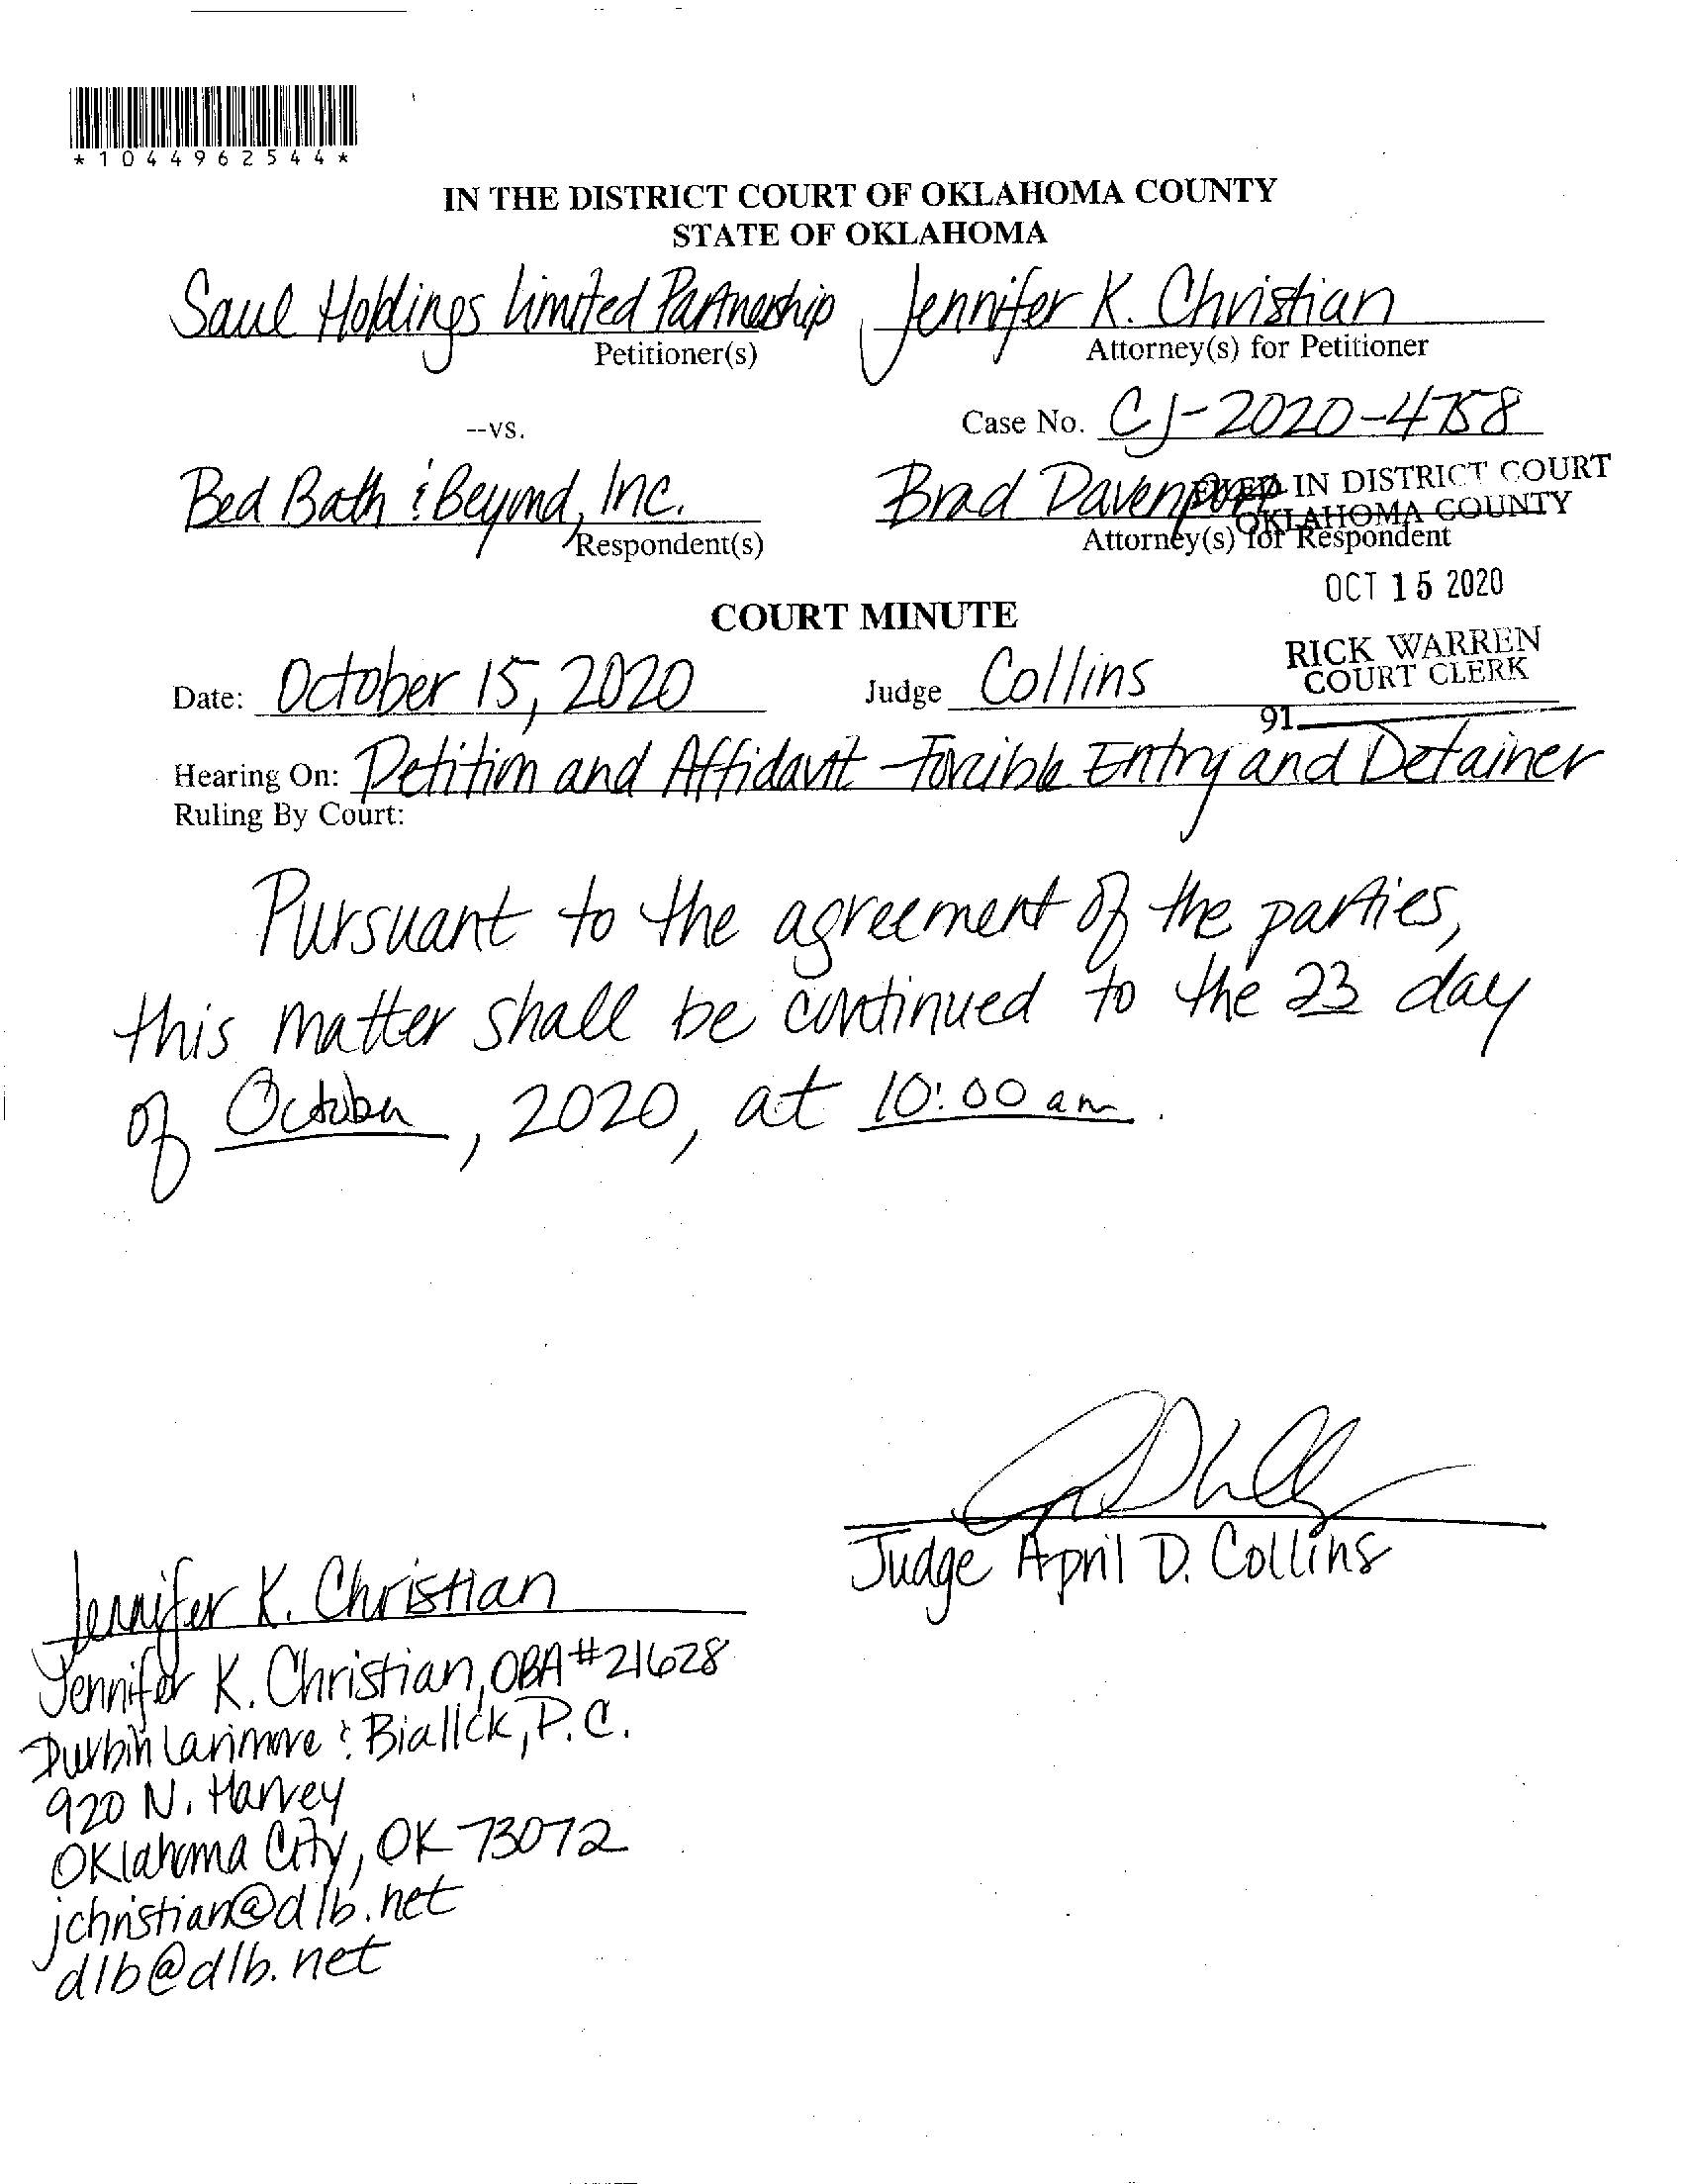 *1044962544*
IN THE DISTRICT COURT OF OKLAHOMA COUNTY
STATE OF OKLAHOMA
Saul Holdings Limited Partnership
Petitioner(s)
Jennifer K. Christian
Attorney(s) for Petitioner
--vs.
Case No. CJ-2020-4758
Bed Bath & Beyond, Inc.
Respondent(s)
Brad Davenport
Attorney(s) for Respondent
FILED IN DISTRICT COURT
OKLAHOMA COUNTY
OCT 15 2020
RICK WARREN
COURT CLERK
91
COURT MINUTE
Date: October 15, 2020
Judge Collins
Hearing On: Petition and Affidavit - Forcible Entry and Detainer
Ruling By Court:
Pursuant to the agreement of the parties,
this matter shall be continued to the 23 day
of October, 2020, at 10:00 am.
Judge April D. Collins
Jennifer K. Christian
Jennifer K. Christian, OBA #21628
Durbin Larimore & Bialick, P.C.
920 N. Harvey
Oklahoma City, OK 73072
jchristian@dlb.net
dlb@dlb.net